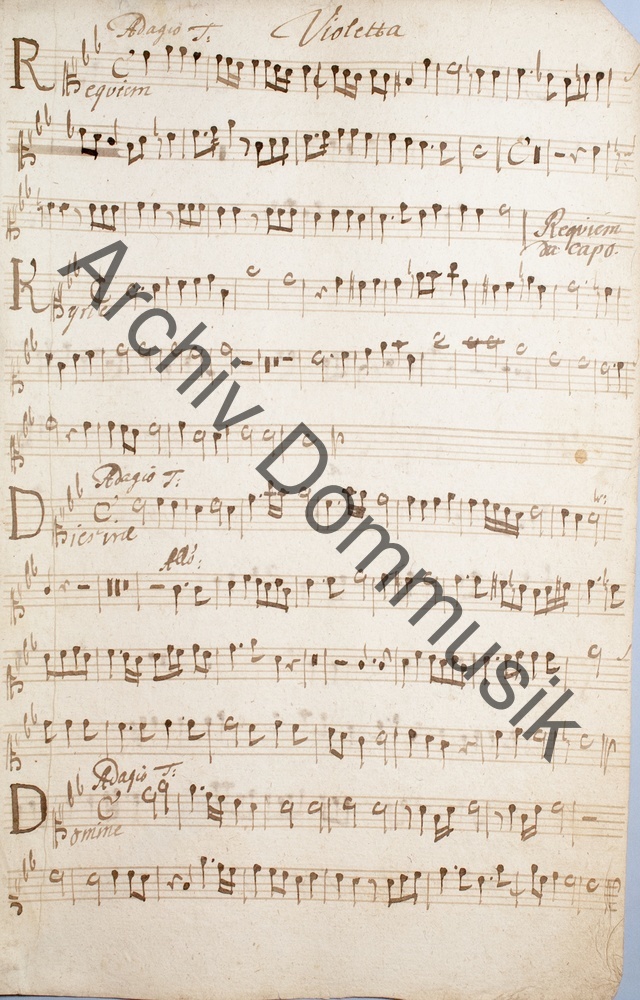 Violetta
Adagio T:
Requiem
Requiem
da capo.
Kyrie
Adagio T:
Dies irae
tr:
Allo:
Adagio T:
Domine
Archiv Dommusik